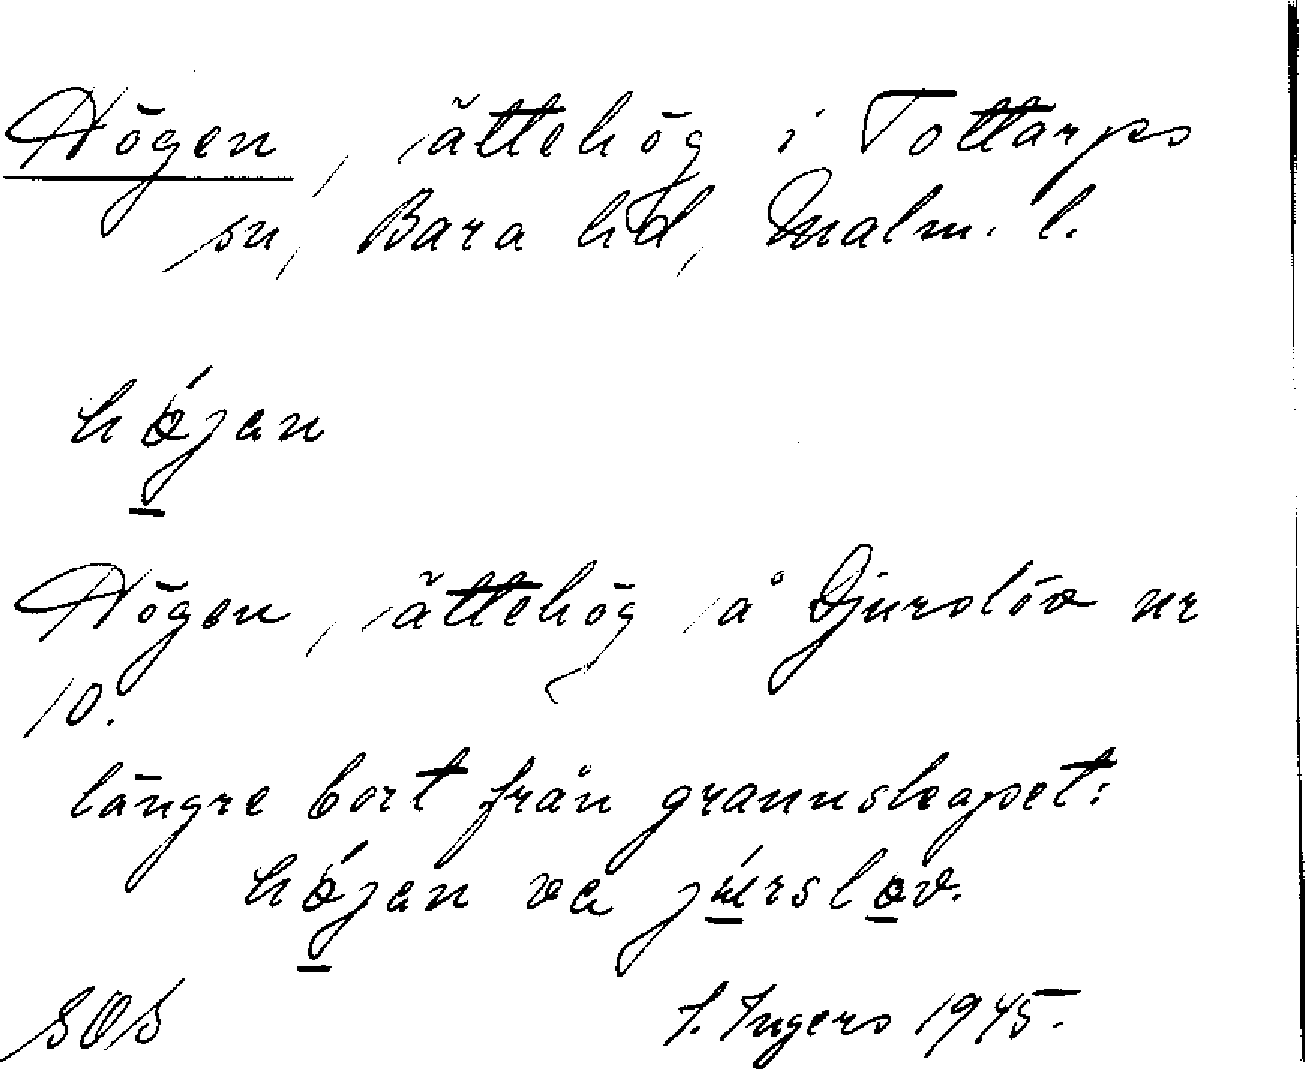 Högen, ättehög i Tottarps
sn, Bara hd, Malm. l.
hǿjan
Högen, ättehög å Djurslöv nr
10.
längre bort från grannskapet:
hǿjan va júrsløv.
SOS I. Ingers 1945.